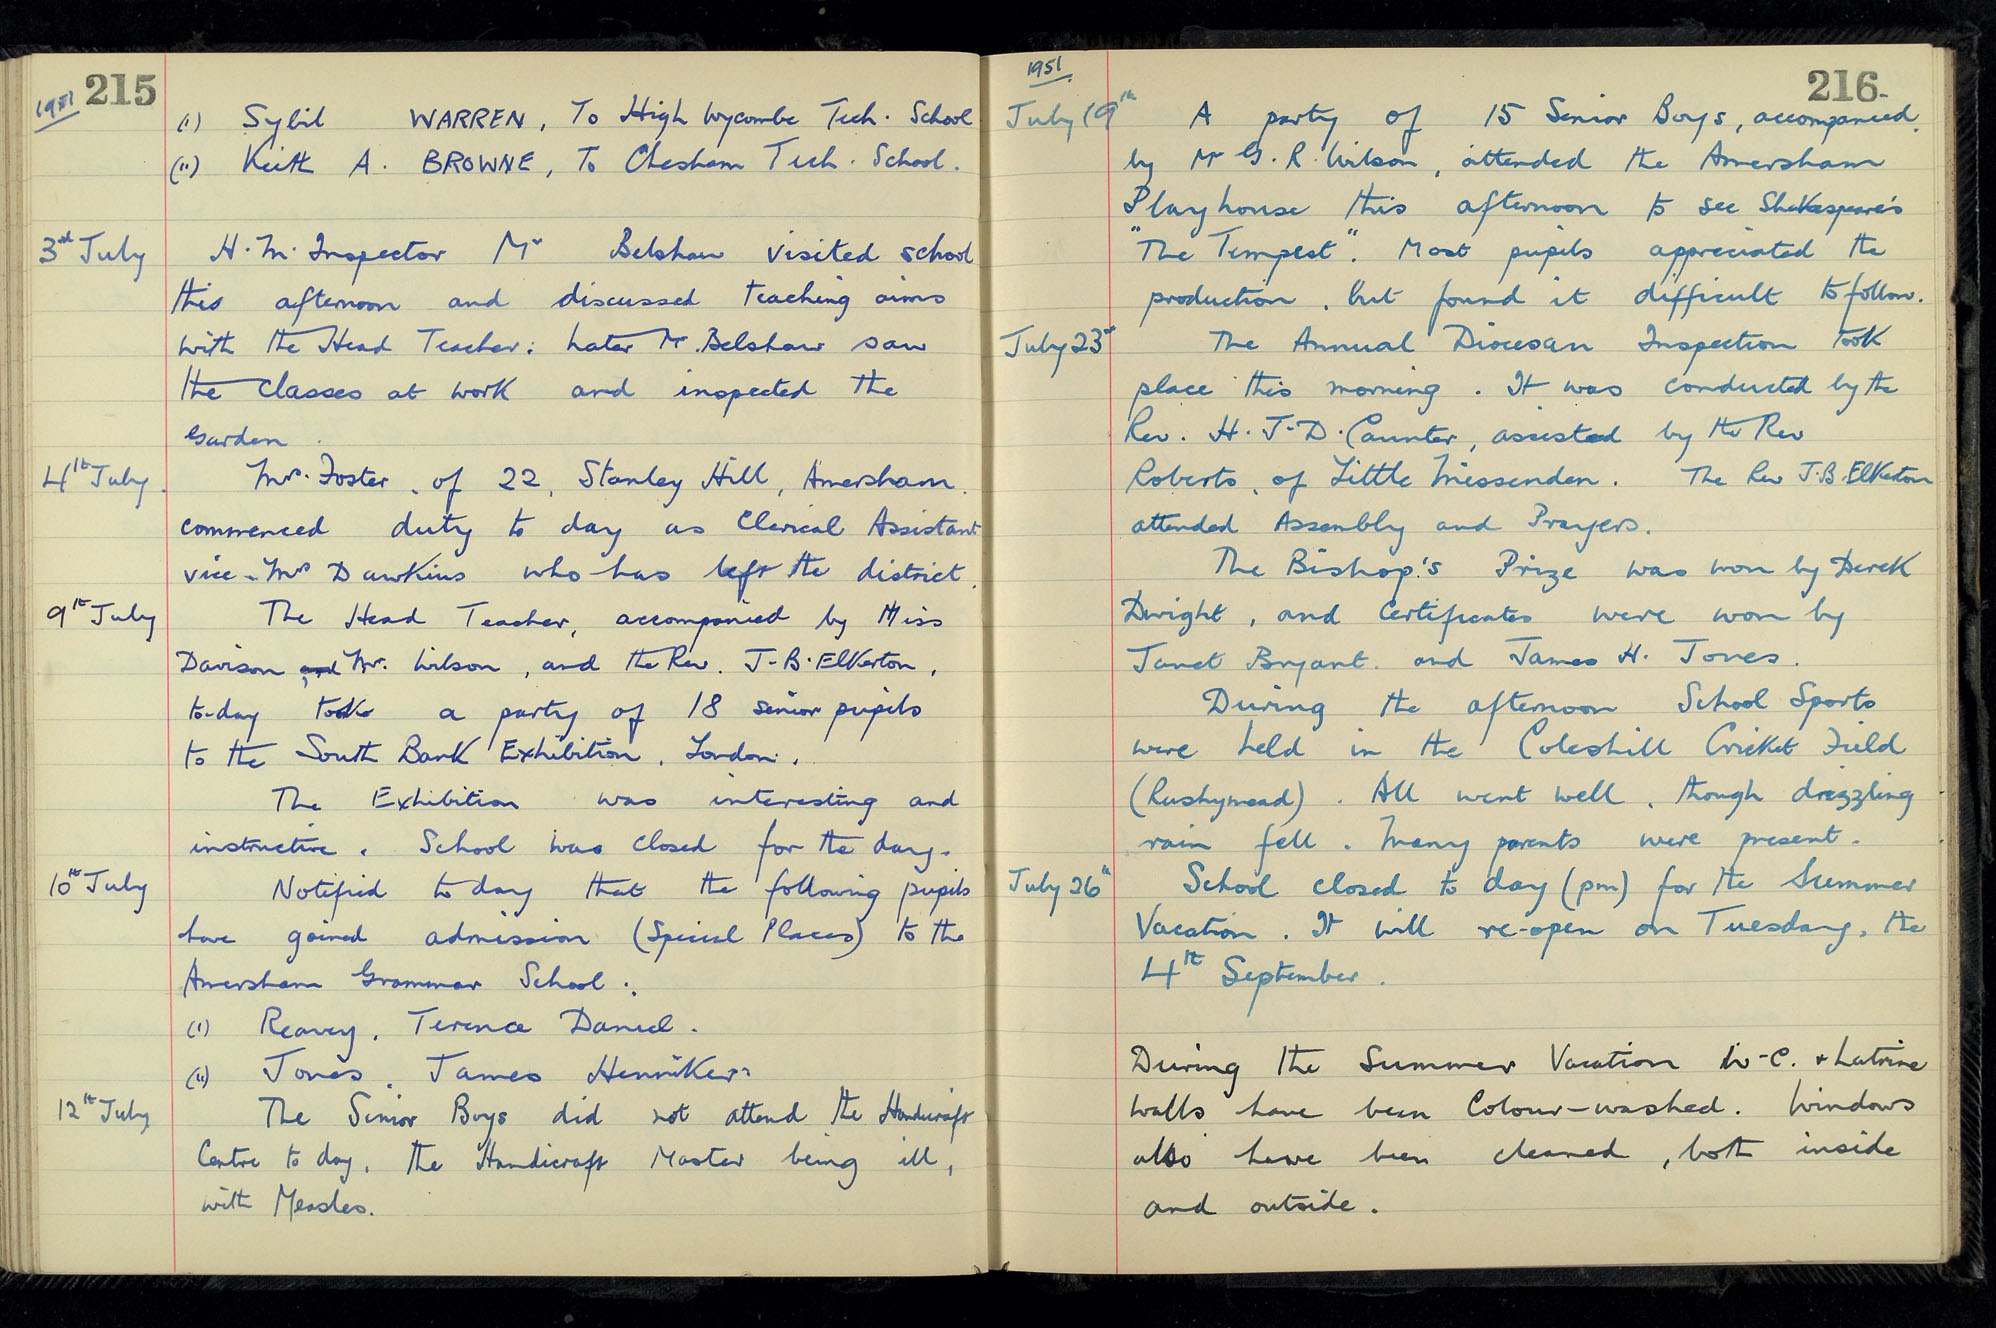 1951 215
(i) Sybil WARREN, To High Wycombe Tech. School
(ii) Keith A. BROWNE, To Chesham Tech. School.
3rd July H.M. Inspector Mr Belshaw visited school
this afternoon and discussed teaching aims
with the Head Teacher: Later Mr. Belshaw saw
the classes at work and inspected the
Garden.
4th July. Mrs. Foster, of 22, Stanley Hill, Amersham,
commenced duty to day as Clerical Assistant
vice-Mrs Dawkins who has left the district.
9th July The Head Teacher, accompanied by Miss
Davison and Mr. Wilson, and the Rev. J.B. Elkerton,
to-day took a party of 18 senior pupils
to the South Bank Exhibition, London.
The Exhibition was interesting and
instructive. School was closed for the day.
10th July Notified to day that the following pupils
have gained admission (Special Places) to the
Amersham Grammar School:
(i) Reavey, Terence Daniel.
(ii) Jones, James Henniker
12th July The Senior Boys did not attend the Handicraft
Centre to day, the Handicraft Master being ill,
with Measles.
1951 216
July 19th A party of 15 Senior Boys, accompanied
by Mr G. R. Wilson, attended the Amersham
Playhouse this afternoon to see Shakespeare's
"The Tempest". Most pupils appreciated the
production, but found it difficult to follow.
July 23rd The Annual Diocesan Inspection took
place this morning. It was conducted by the
Rev. H. J. D. Caunter, assisted by the Rev
Roberts, of Little Missenden. The Rev J.B. Elkerton
attended Assembly and Prayers.
The Bishop's Prize was won by Derek
Dwight, and Certificates were won by
Janet Bryant and James H. Jones.
During the afternoon School Sports
were held in the Coleshill Cricket Field
(Rushymead). All went well, though drizzling
rain fell. Many parents were present.
July 26th School closed to day (pm) for the Summer
Vacation. It will re-open on Tuesday, the
4th September.
During the Summer Vacation W.C. & Latrine
Walls have been Colour-washed. Windows
also have been cleaned, both inside
and outside.